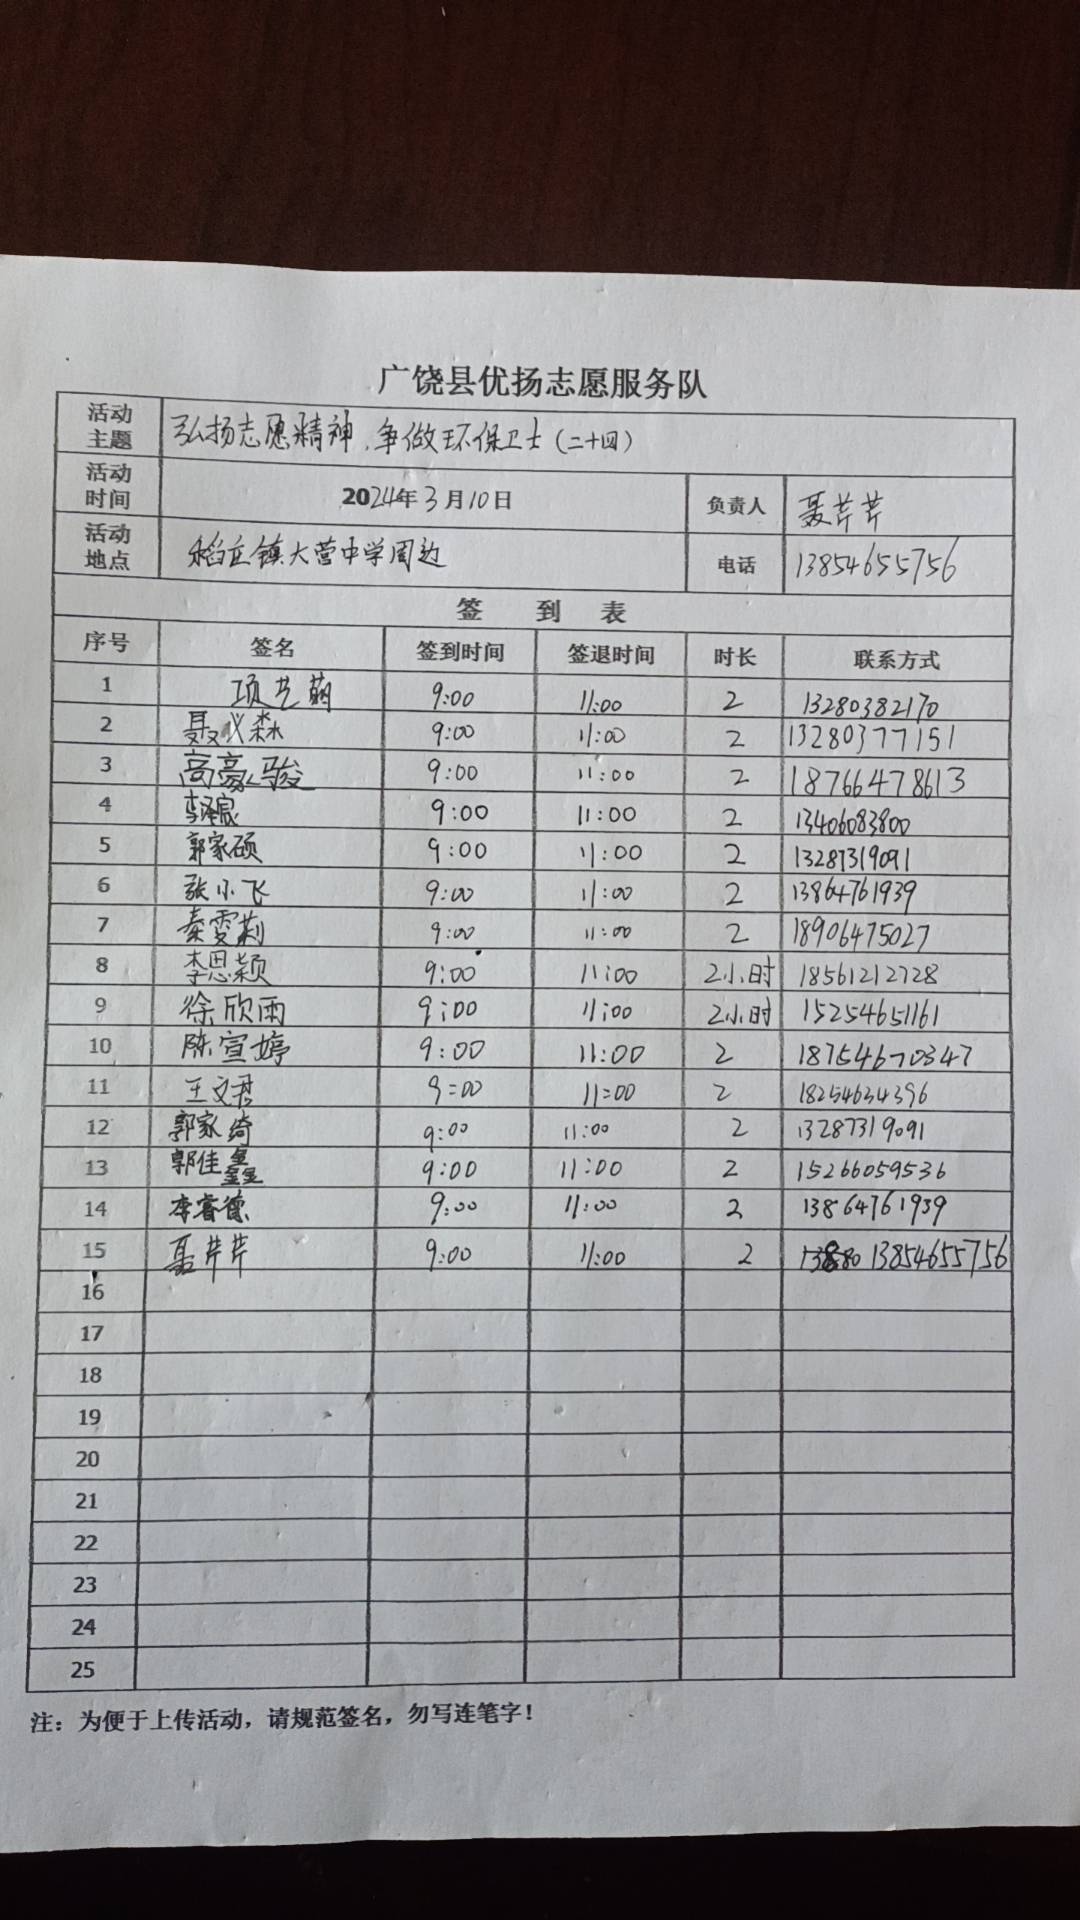 广饶县优扬志愿服务队
活动主题 弘扬志愿精神,争做环保卫士(二十四)
活动时间 2024年3月10日 负责人 聂芹芹
活动地点 稻庄镇大营中学周边 电话 13854655756
签 到 表
序号 签名 签到时间 签退时间 时长 联系方式
1 项艺萌 9:00 11:00 2 13280382170
2 聂义森 9:00 11:00 2 13280377151
3 高豪骏 9:00 11:00 2 18766478613
4 李泽宸 9:00 11:00 2 13406083800
5 郭家硕 9:00 11:00 2 13287319091
6 张小飞 9:00 11:00 2 13864761939
7 秦雯莉 9:00 11:00 2 18906475027
8 李思颖 9:00 11:00 2小时 18561212728
9 徐欣雨 9:00 11:00 2小时 15254651161
10 陈宣婷 9:00 11:00 2 18754670347
11 王文君 9:00 11:00 2 18254634396
12 郭家绮 9:00 11:00 2 13287319091
13 郭佳鑫 9:00 11:00 2 15266059536
14 李睿德 9:00 11:00 2 13864761939
15 聂芹芹 9:00 11:00 2 13854655756
16
17
18
19
20
21
22
23
24
25
注:为便于上传活动,请规范签名,勿写连笔字!